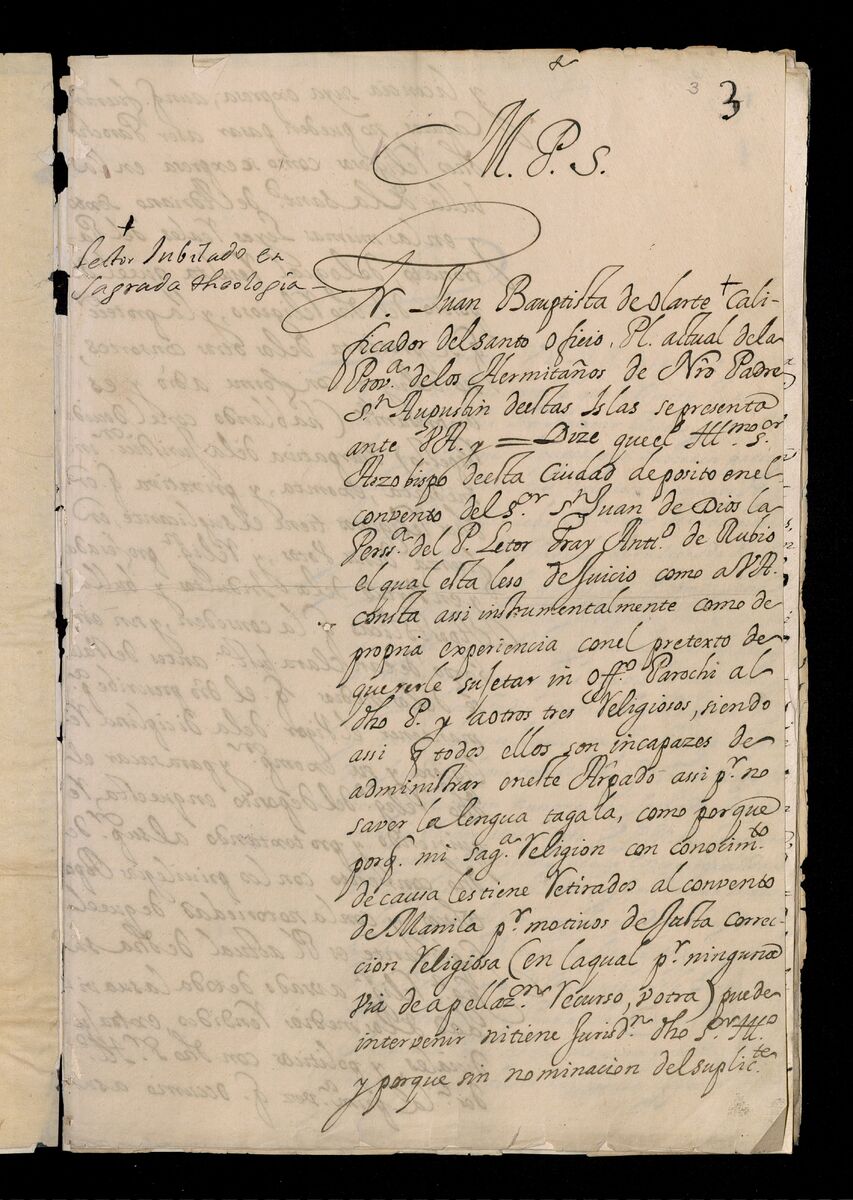 3 3
M. P. S.
+
Lector Jubilado en
Sagrada theologia
Juan Bauptista de olarte + Cali-
ficador del santo oficio, Pl. actual dela
Prov.a delos Hermitaños de Nrõ Padre
S.n Augustin deestas Islas se presenta
ante VA. y = Dize que el Ill.mo s.or
Arzobispo deesta Ciudad deposito enel
convento del S.or S.n Juan de Dios la
Perss.a del P. Letor Fray Ant.o de Rubio
el qual esta leso de Juicio como a VA.
consta assi instrumentalmente como de
propria experiencia conel pretexto de
quererle sujetar in off.o Parochi al
dho P. y a otros tres Religiosos, siendo
assi q todos ellos son incapazes de
administrar eneste Arpado assi p.r no
saver la lengua tagala, como porque
porq. mi sag.a Religion con conocim.to
de causa les tiene Retirados al convento
de Manila p.r motivos de Justa correc-
cion Religiosa (en laqual p.r ninguna
via de apellaz.on Recurso, u otra) puede
intervenir ni tiene Jurisd.n dho S.or Ill.o
y porque sin nominacion del suplic.te